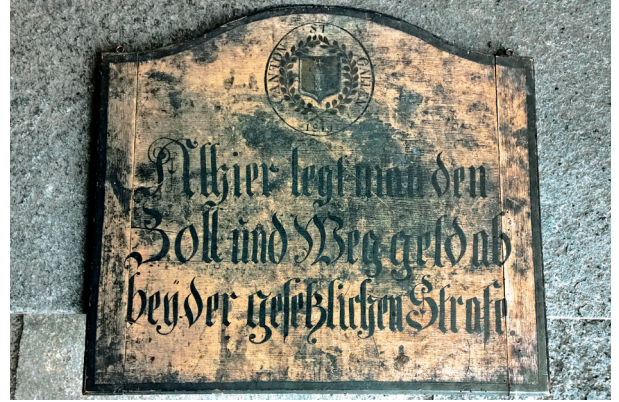 CANTON ST. GALLEN
Allhier legt man den
Zoll und Weg-geld ab
bey der gesetzlichen Strafe.